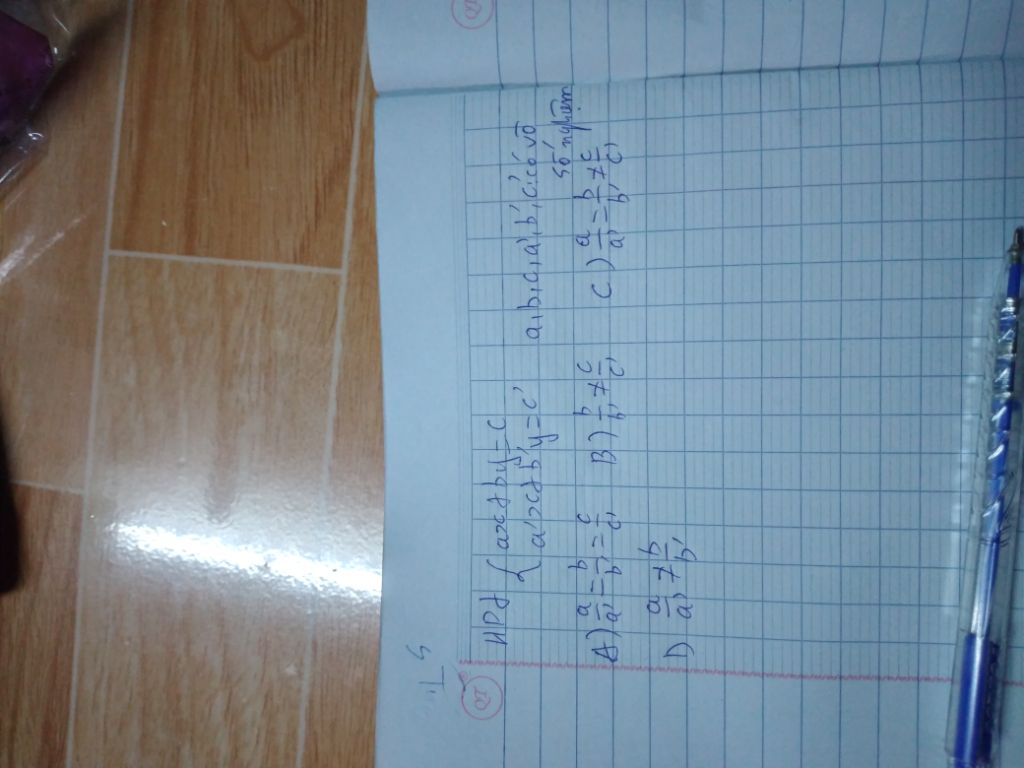 T5
HPt { ax+by=c
a'x+b'y=c'
a,b,c,a',b',c' có vô
số nghiệm
A) a/a' = b/b' = c/c' B) b/b' ≠ c/c' C) a/a' = b/b' ≠ c/c'
D) a/a' ≠ b/b'